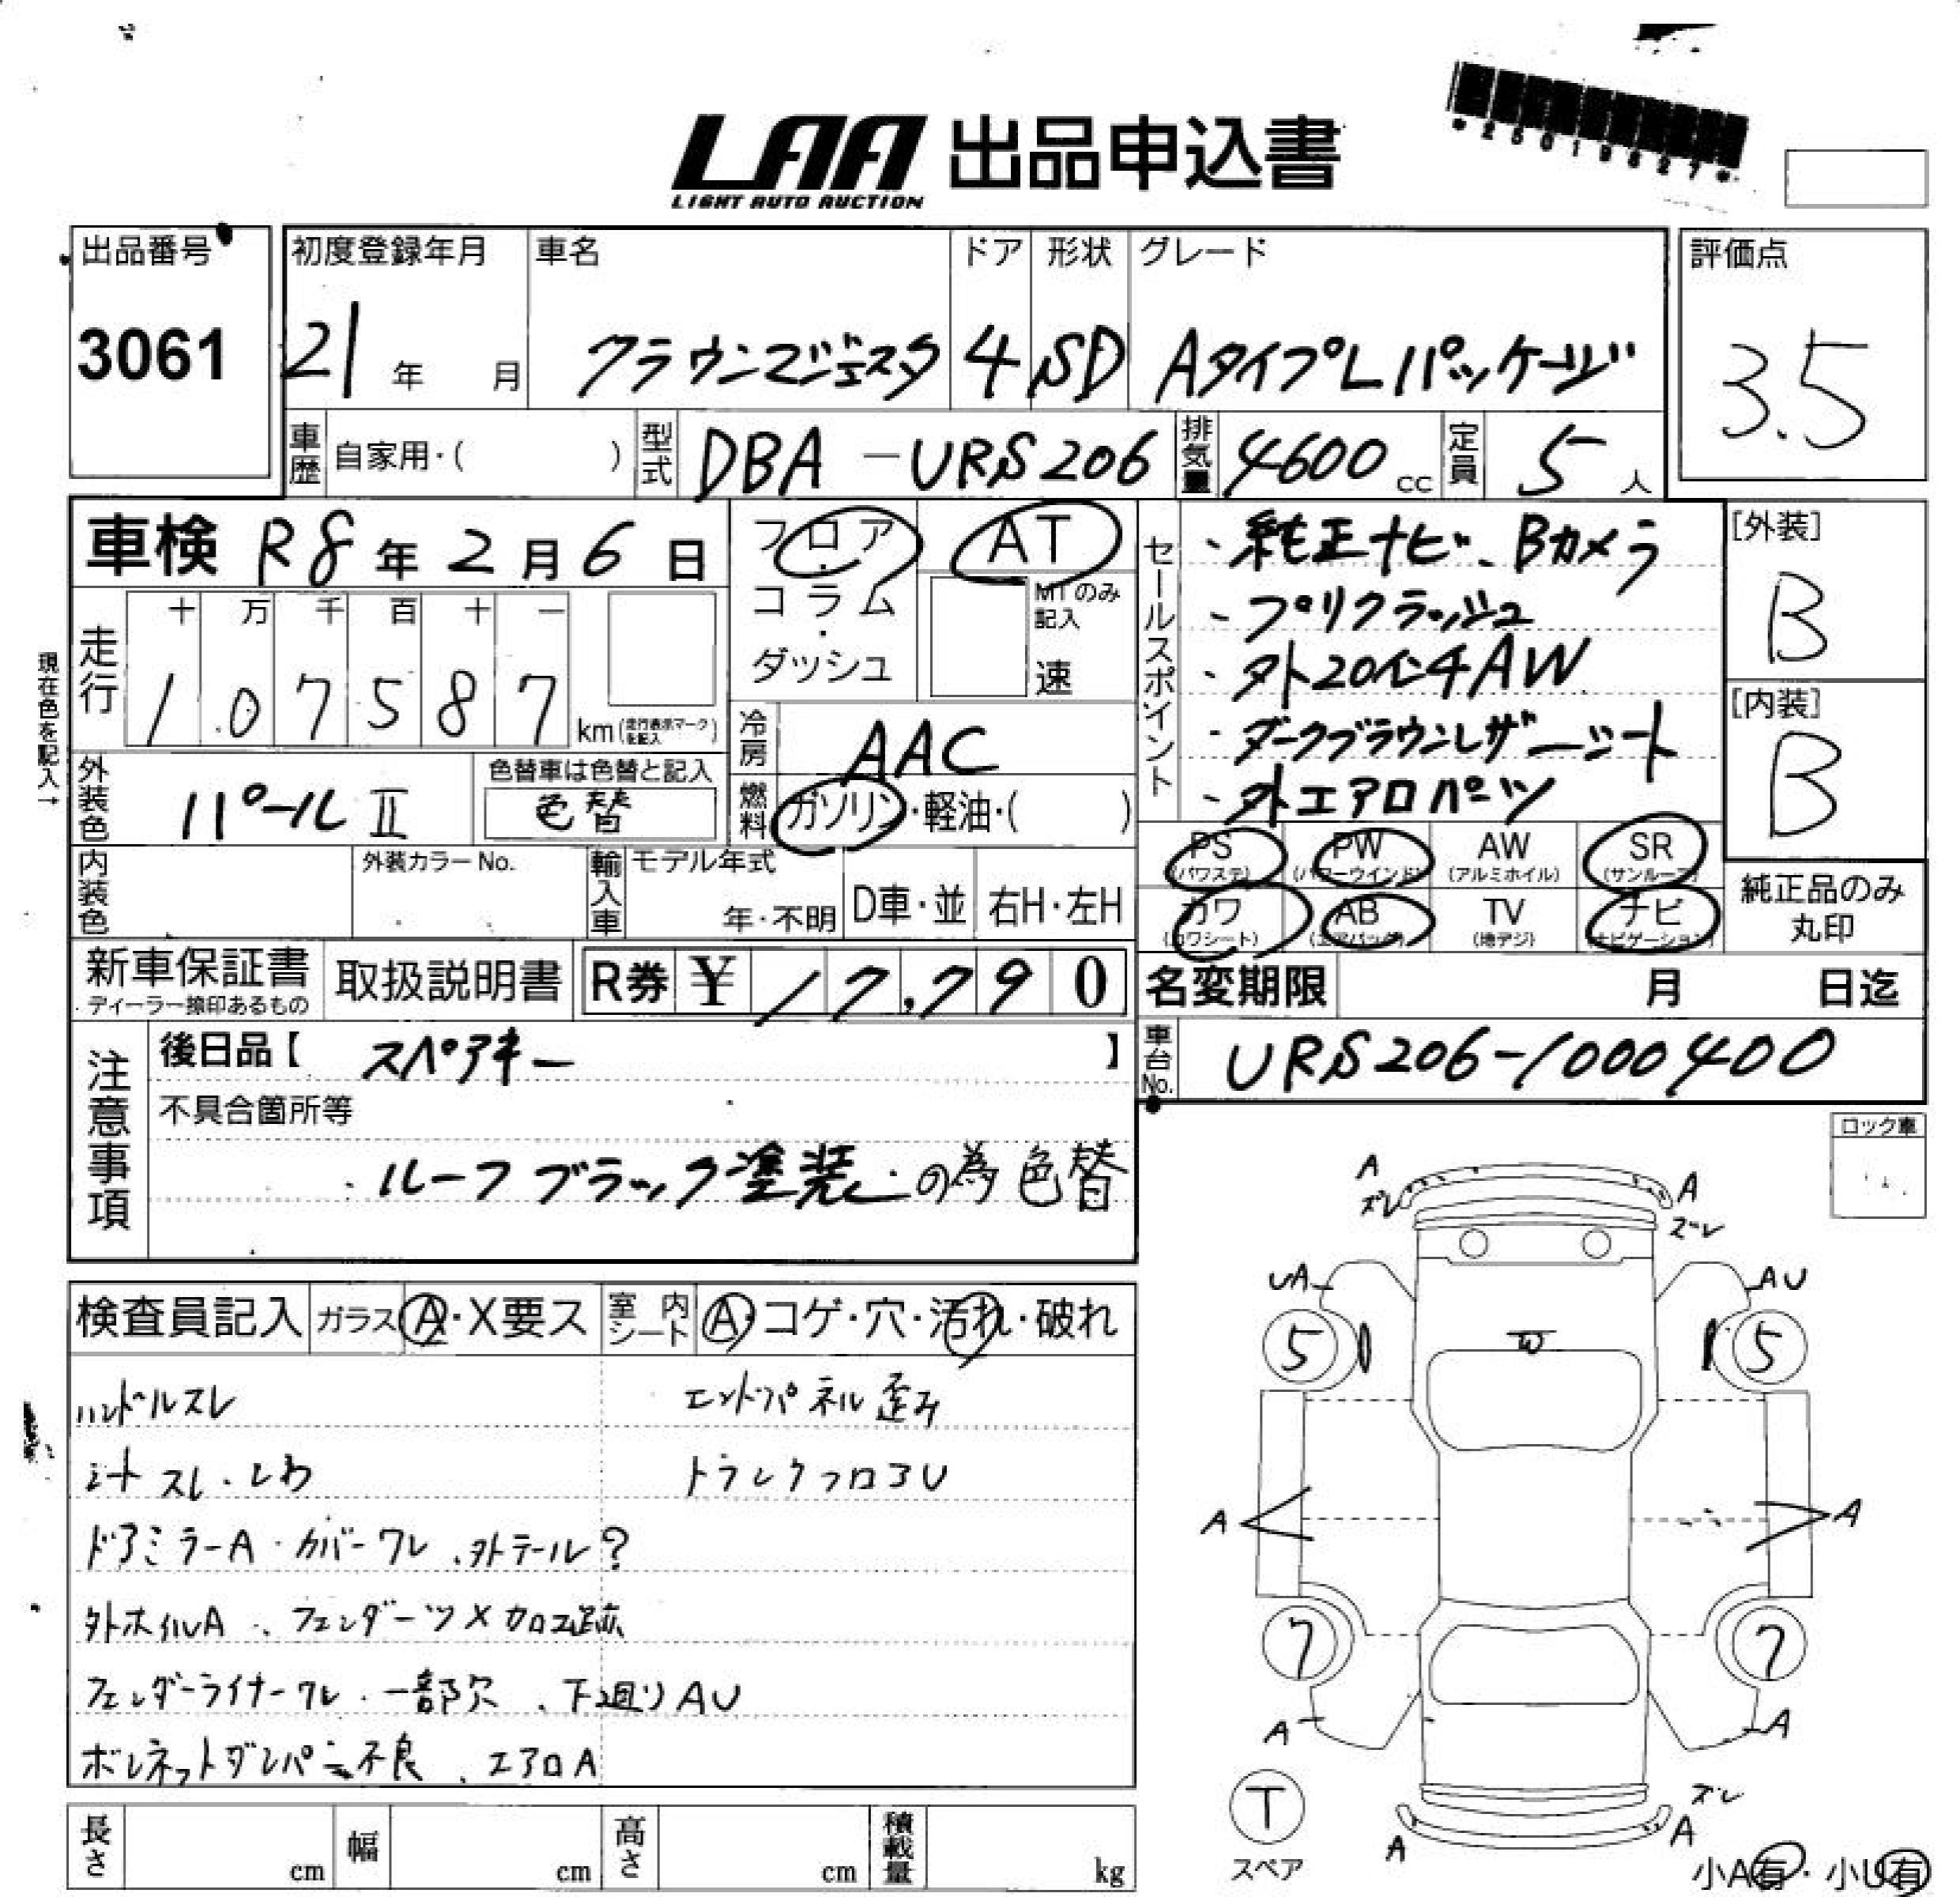 *25019827*
LAA 出品申込書
LIGHT AUTO AUCTION
出品番号
3061
初度登録年月 車名 ドア 形状 グレード
21年 月 クラウンマジェスタ 4 SD AタイプLパッケージ
評価点
3.5
車歴 自家用・( ) 型式 DBA-URS206 排気量 4600cc 定員 5人
車検 R8年2月6日
フロア・コラム・ダッシュ
AT
MTのみ記入
速
走行
十 万 千 百 十 一
1 0 7 5 8 7 km(走行表示マークを記入)
現在色を記入→
冷房 AAC
燃料 ガソリン・軽油・( )
外装色 パールⅡ
色替車は色替と記入
色替
内装色 外装カラーNo. 輸入車 モデル年式 年・不明 D車・並 右H・左H
セールスポイント
・純正ナビ、Bカメラ
・プリクラッシュ
・外20インチAW
・ダークブラウンレザーシート
・外エアロパーツ
[外装]
B
[内装]
B
PS (パワステ) PW (パワーウインド) AW (アルミホイル) SR (サンルーフ)
カワ (カワシート) AB (エアバック) TV (地デジ) ナビ (ナビゲーション)
純正品のみ丸印
新車保証書 ディーラー捺印あるもの 取扱説明書 R券 ¥ 17,790
名変期限 月 日迄
車台No. URS206-1000400
注意事項
後日品【 スペアキー 】
不具合箇所等
・ルーフブラック塗装の為色替
ロック車
検査員記入 ガラス A・X要ス 室内シート A・コゲ・穴・汚れ・破れ
ハンドルスレ エンドパネル歪み
シートスレ・シワ トランクフロアU
ドアミラーA・カバーワレ、外テール?
外ホイルA、フェンダーツメ加工跡
フェンダーライナーワレ・一部欠、下廻りAU
ボンネットダンパー不良、エアロA
A A
ズレ ズレ
UA AU
5 5
W
A A
7 7
A A
T
スペア
ズレ
A A
小A有・小U有
長さ cm 幅 cm 高さ cm 積載量 kg